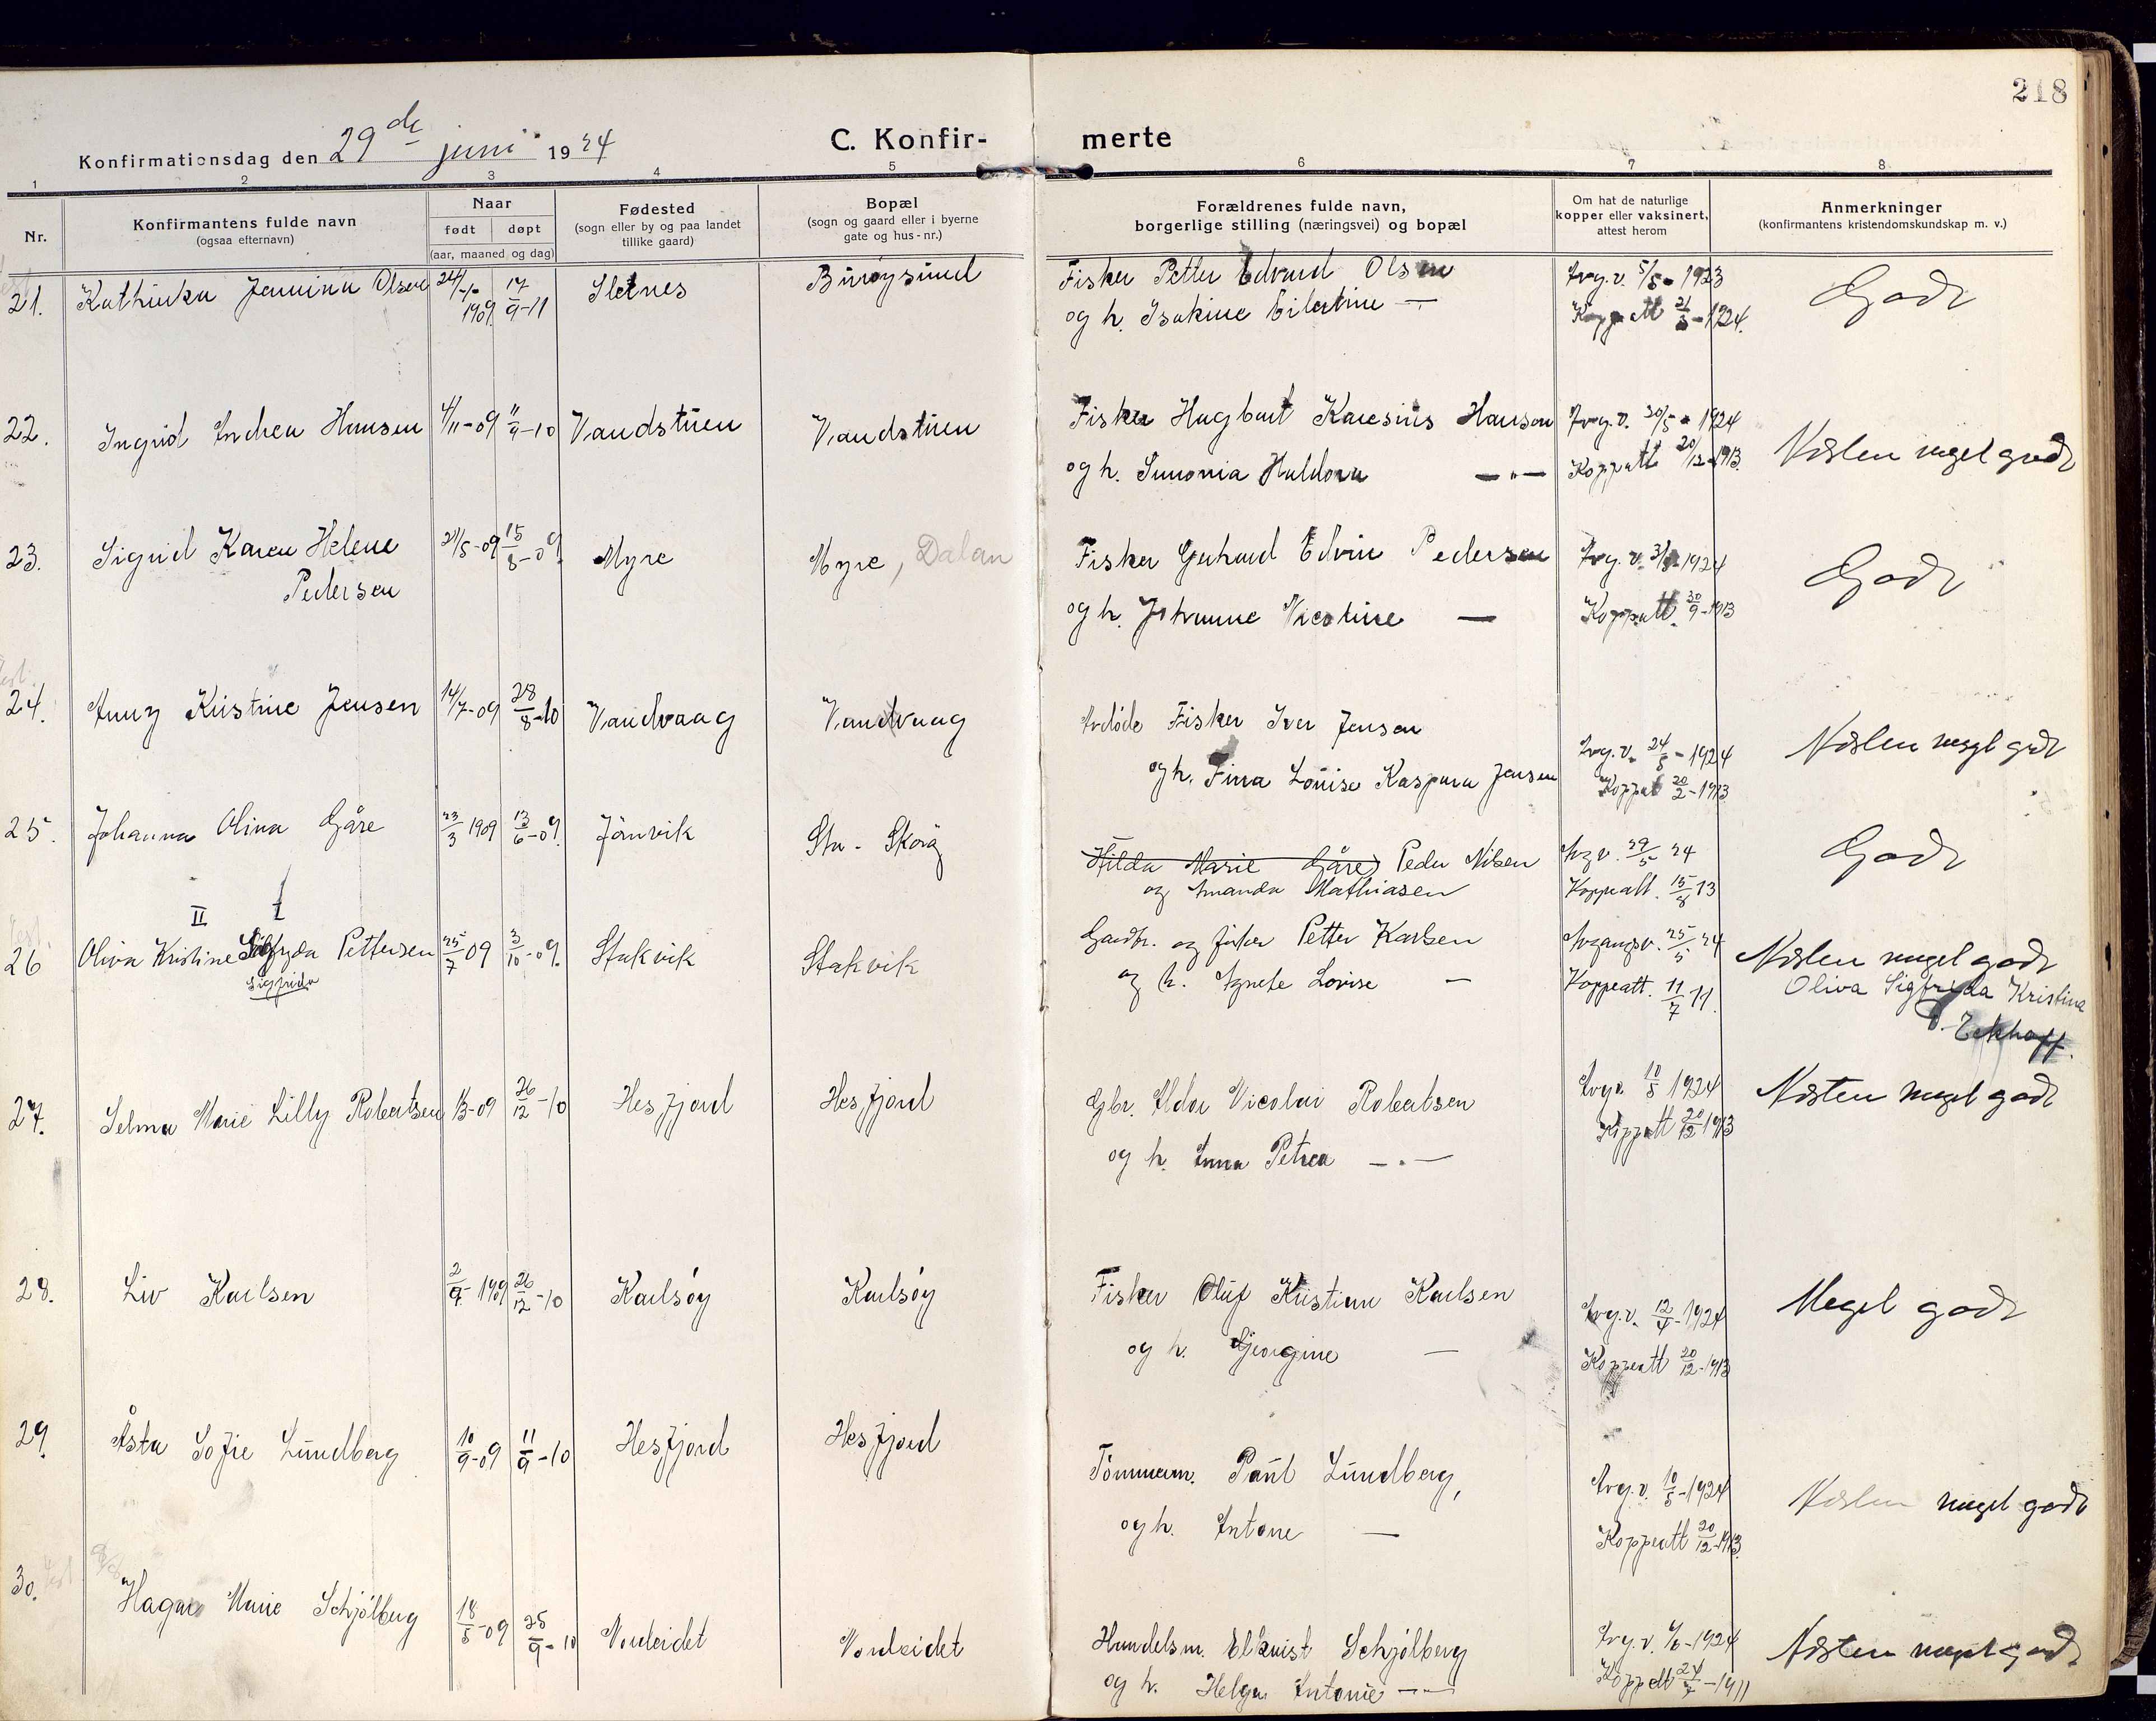 218
Konfirmationsdag den 29de juni 1924
C. Konfir-merte
1 2 3 4 5 6 7 8
Nr.
Konfirmantens fulde navn
(ogsaa efternavn)
Naar
født døpt
(aar, maaned og dag)
Fødested
(sogn eller by og paa landet
tillike gaard)
Bopæl
(sogn og gaard eller i byerne
gate og hus-nr.)
Forældrenes fulde navn,
borgerlige stilling (næringsvei) og bopæl
Om hat de naturlige
kopper eller vaksinert,
attest herom
Anmerkninger
(konfirmantens kristendomskundskap m. v.)
21. Kathinka Jensine Olsen 17/9-11 Sletnes Burøysund Fisker Petter Edvard Olsen Avg.v. 5/5-1923 Godt
1909
og h. Isakine Eilertine — Koppatt 1924.
22. Ingrid Andrea Hansen 4/11-09 11/9-10 Vandstuen Vandstuen Fisker Hagbart Karesius Hansen Avg.v. 30/5-1924 Næsten meget godt
og h. Simonia Haldora —"— Koppatt 20/12-1913.
23. Sigrid Karen Helene 21/5-09 15/8-09. Myre Myre, Dalan Fisker Gerhard Edvin Pedersen Avg.v. 1924 Godt
Pedersen og h. Johanne Nicoline — Koppatt. 30/9-1913
24. Anny Kristine Jensen 14/7-09 28/8-10 Vandvaag Vandvaag Avdøde Fisker Iver Jensen Næsten meget godt
og h. Finna Louise Kaspara Jensen Avg.v. 24/5-1924
Koppat 20/2-1913
25. Johanna Olina Gåre 23/3 1909 13/6-09. Jønvik Sta-Skorø Hilda Marie Gåre) Peder Nilsen Avg v. 29/5 24 Godt
og Amanda Mathiasen Koppeatt. 15/8 13
II I
26 Oliva Kristine Sigfryda Pettersen 25/7-09 3/10-09. Stakvik Stakvik Gaardbr. og fisker Petter Karlsen Avgangsv. 25/5 24 Næsten meget godt
Sigfrida og h. Agnete Lovise — Koppeatt. 11/7 11. Oliva Sigfryda Kristina
Eckhoff.
27. Selma Marie Lilly Robertsen 1/3-09 26/12-10 Hesfjord Hesfjord Gbr. Aldor Nicolai Robertsen Avgv. 10/5 1924 Næsten meget godt
og h. Anna Petrea —.— Koppatt 20/12 1913
28. Liv Karlsen 2/9-1909 26/12-10 Karlsøy Karlsøy Fisker Oluf Kristian Karlsen Avg.v. 12/4-1924 Meget godt
og h. Georgine — Koppeatt 20/12-1913
29. Åsta Sofie Lundberg 10/9-09 11/9-10 Hesfjord Hesfjord Tømmerm. Paul Lundberg, Avg.v. 10/5-1924 Næsten meget godt
og h. Antone — Koppeatt 20/12-1913.
30. Hagar Marie Schjølberg 18/5-09 25/9-10 Nordeidet Nordeidet Handelsm. Elkvist Schjølberg Avg.v. 1924 Næsten meget godt
og h. Helga Antonie —"— Koppatt -1911